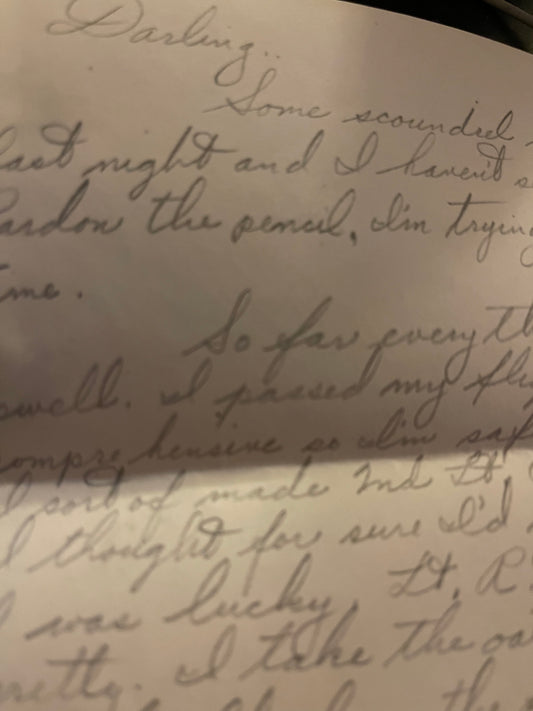 Darling..
Some scoundrel
last night and I haven't
Pardon the pencil, I'm trying
time.
So far every
swell. I passed my
comprehensive so I'm
I sort of made 2nd Lt.
I thought for sure I'd
I was lucky, Lt. R
pretty. I take the
the